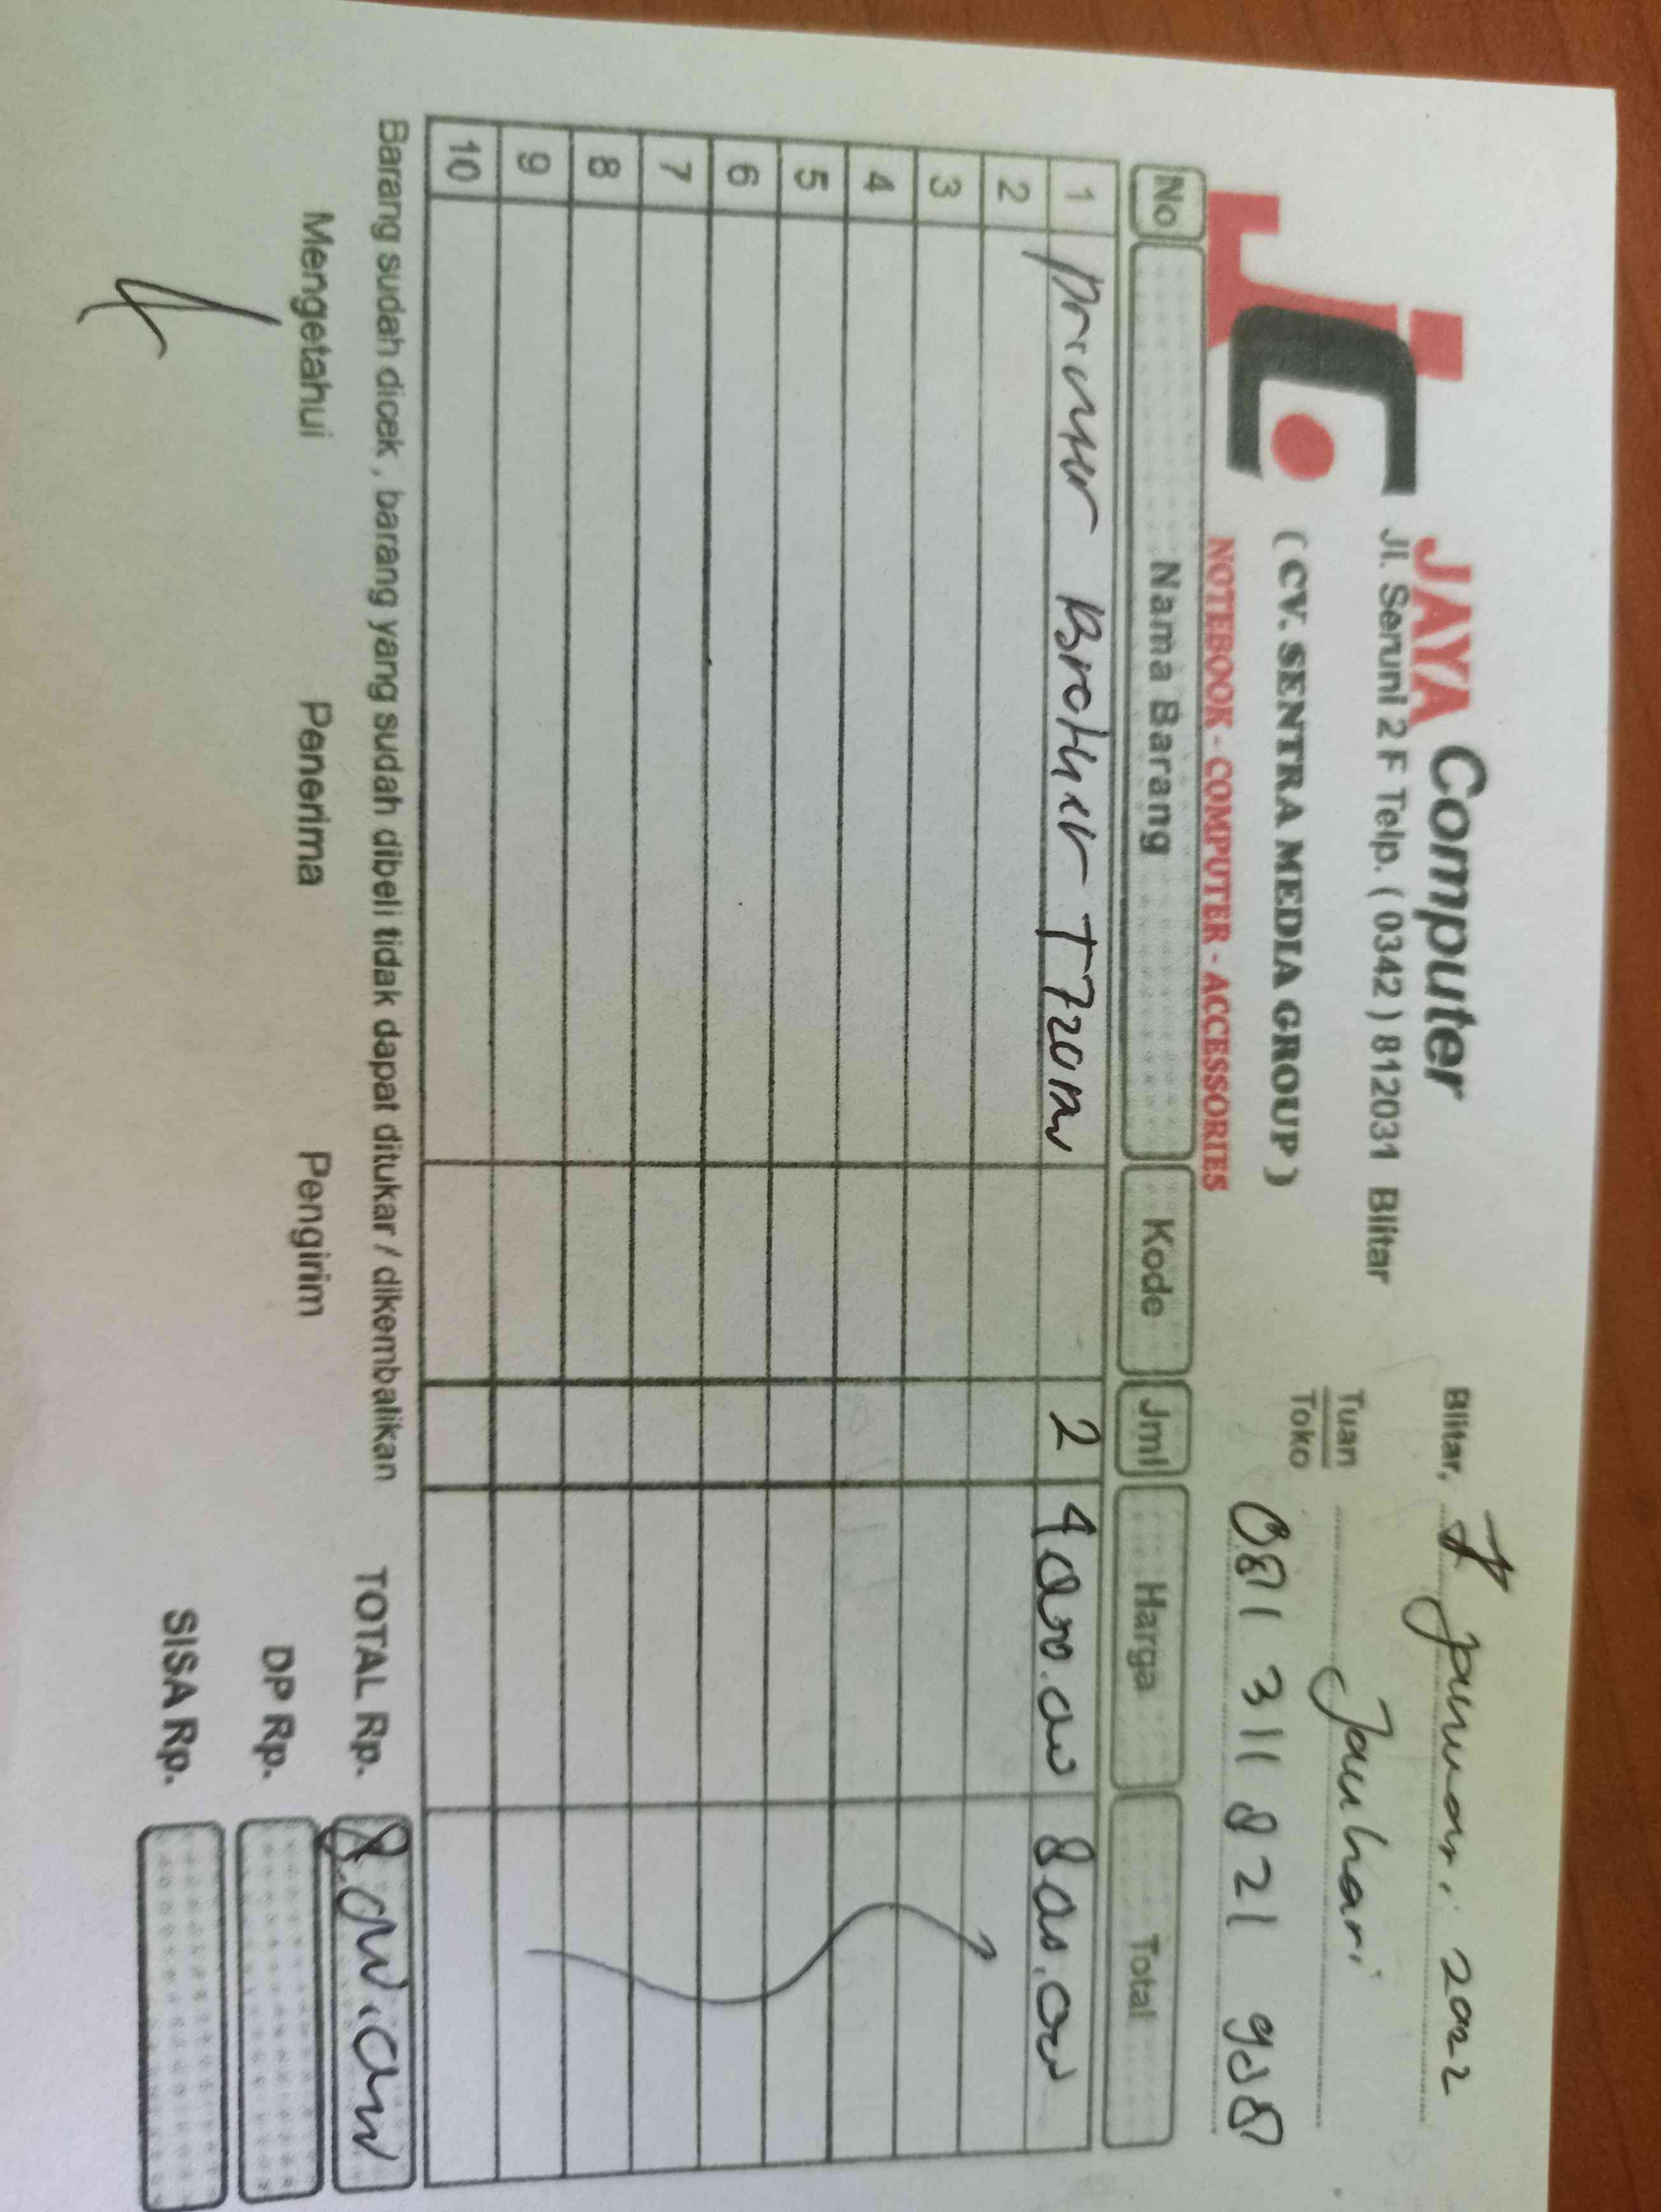 JC
JAYA Computer
Jl. Seruni 2 F Telp. ( 0342 ) 812031 Blitar
( CV. SENTRA MEDIA GROUP )
NOTEBOOK - COMPUTER - ACCESSORIES
Blitar, 7 Januari 2022
Tuan
Toko
Jauhari
081 311 821 988
No Nama Barang Kode Jml Harga Total
1 Printer Brother T720 2
2
3
4
5
6
7
8
9
10
Barang sudah dicek , barang yang sudah dibeli tidak dapat ditukar / dikembalikan
TOTAL Rp.
Mengetahui Penerima Pengirim
DP Rp.
SISA Rp.